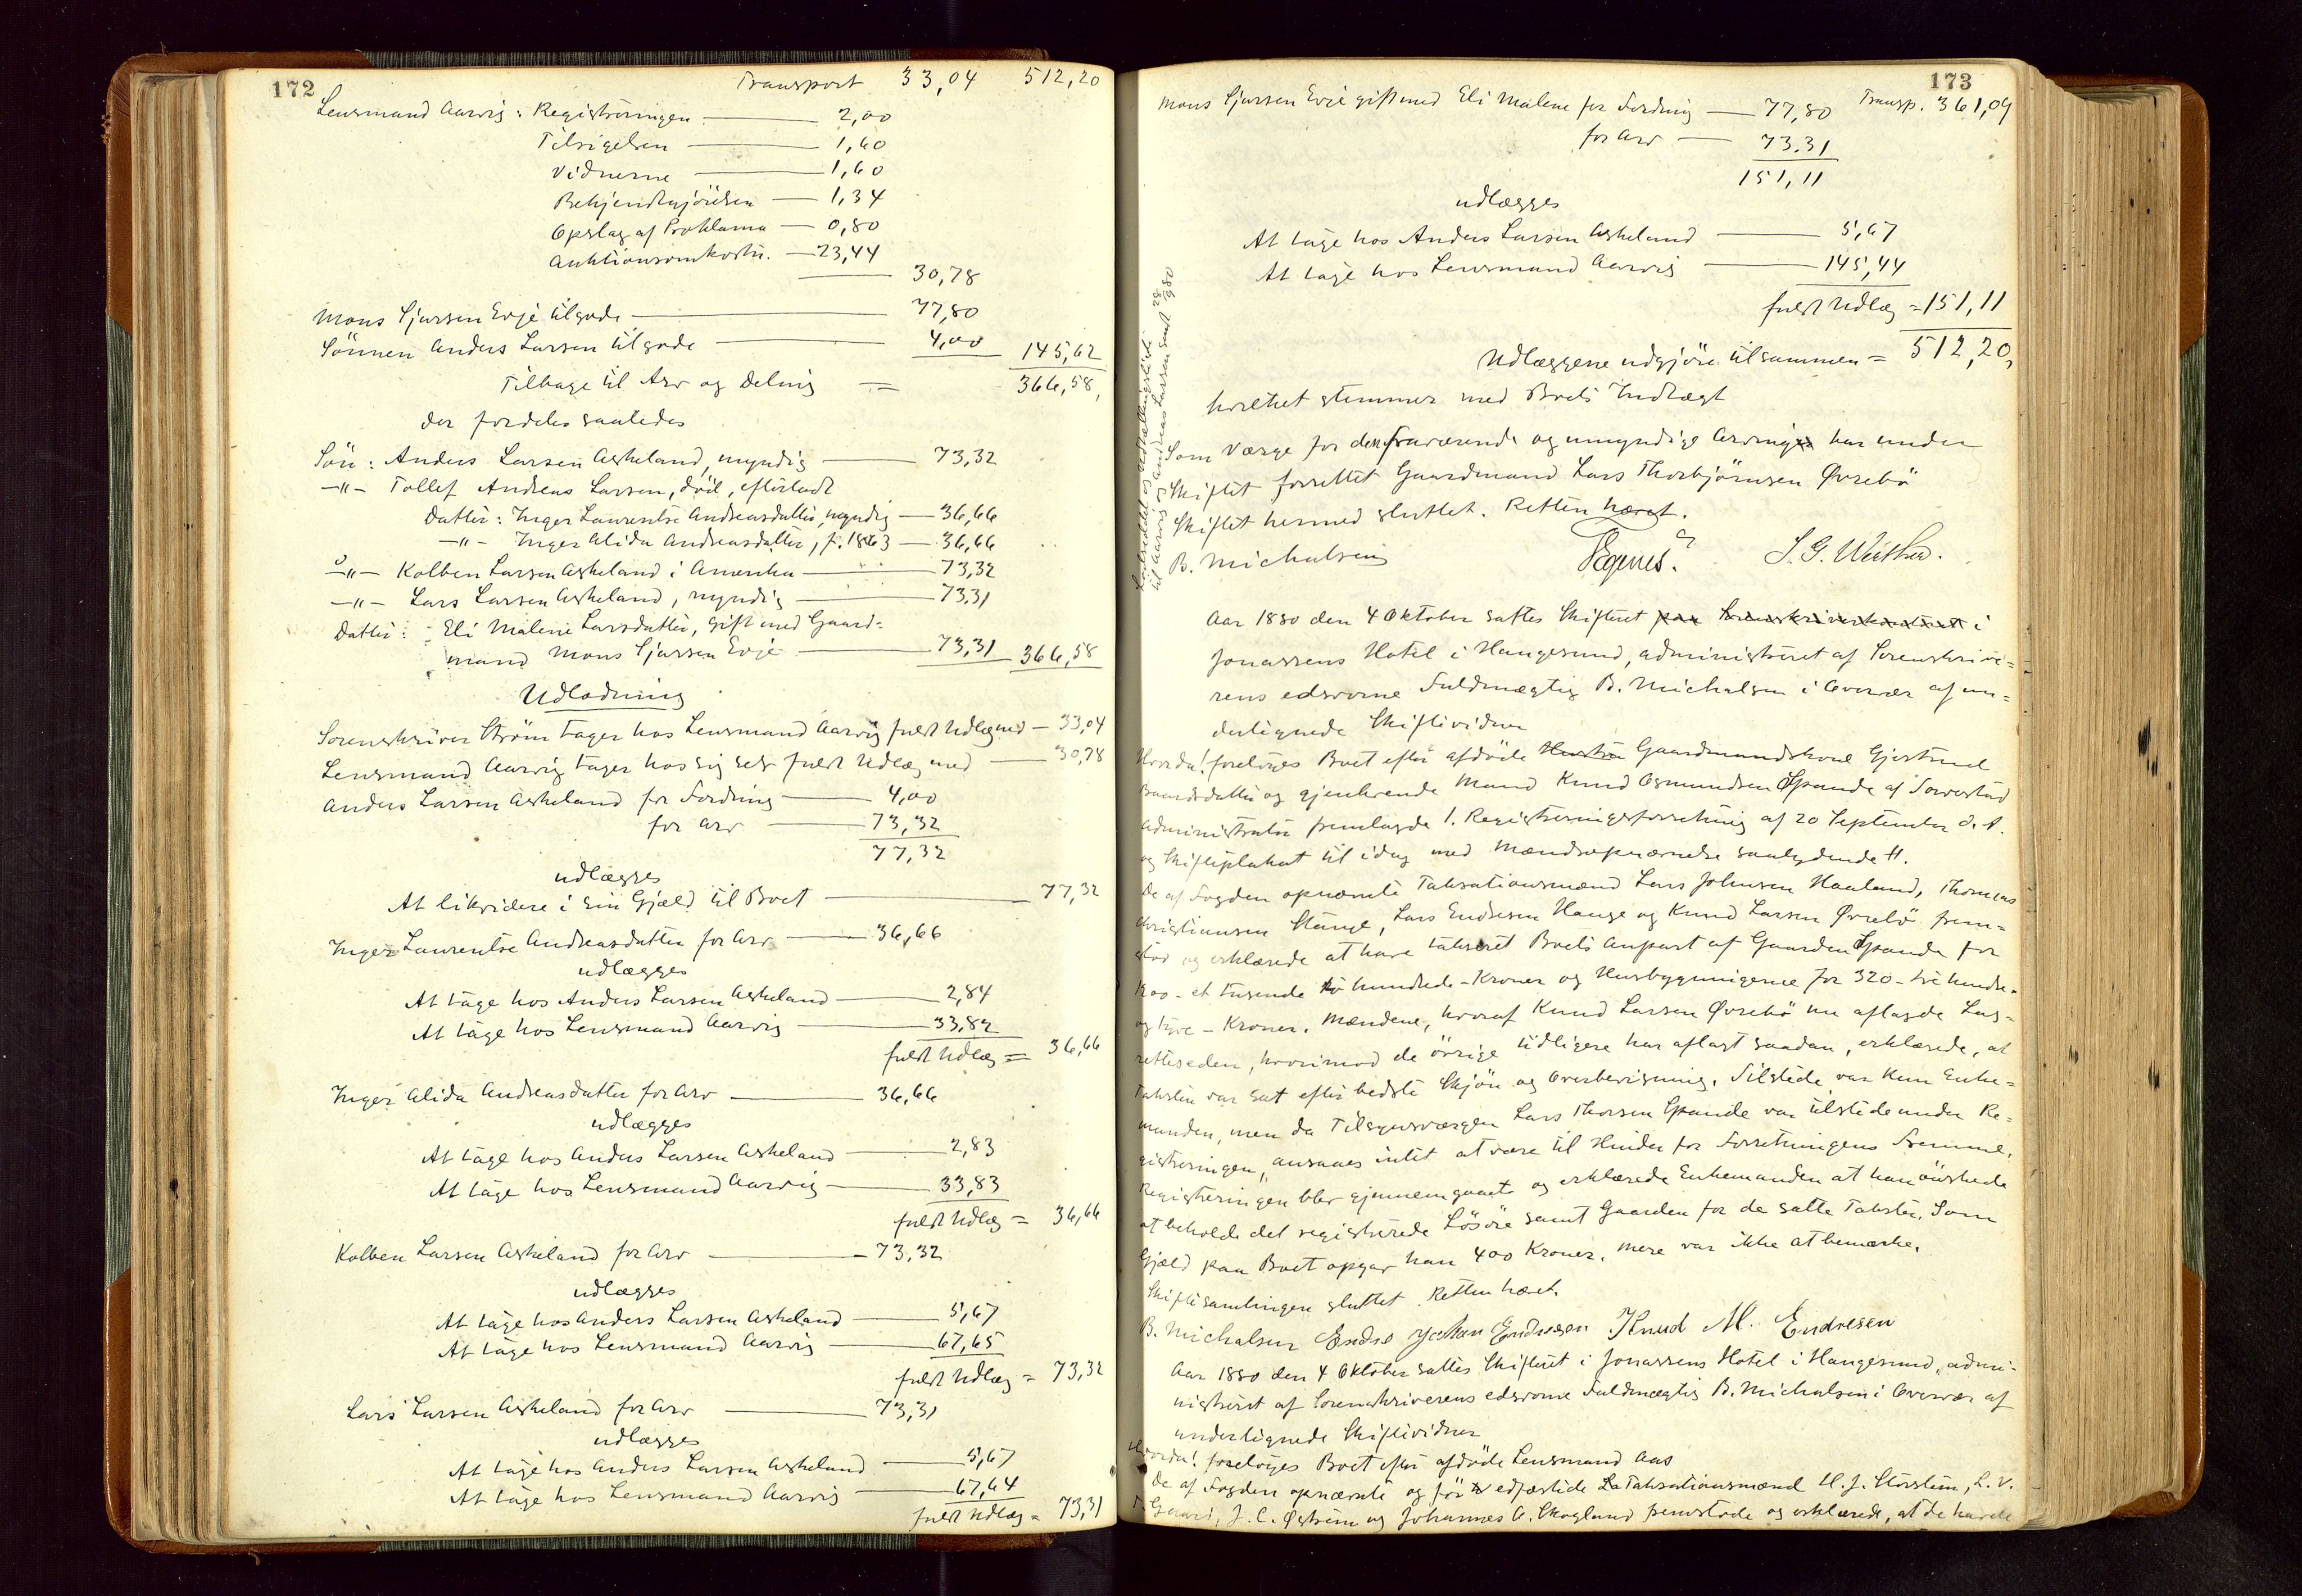 172
Transport 33,04 512,20
Lensmand Aarvig: Registreringen — 2,00
Tilsigelsen — 1,60
Vidnerne — 1,60
Bekjendtgjörelsen — 1,34
Opslag af Proklama — 0,80
Auktionsomkostn. — 23,44
30,78
Mons Sjursen Evje tilgode — 77,80
Sönnen Anders Larsen tilgode — 4,00 145,62
Tilbage til Arv og Deling = 366,58,
der fordeles saaledes
Sön: Anders Larsen Askeland, myndig — 73,32
-"- Tollef Andreas Larsen, död, efterladt
Datter: Inger Laurentse Andreasdatter, myndig — 36,66
-"- Inger Alida Andreasdatter, f. 1863 — 36,66
-"- Kolben Larsen Askeland i Amerika — 73,32
-"- Lars Larsen Askeland, myndig — 73,31
Datter: Eli Malene Larsdatter, gift med Gaard-
mand Mons Sjursen Evje — 73,31 366,58
Udlodning
Sorenskriver Ström tager hos Lensmand Aarvig fuldt Udlæg med — 33,04
Lensmand Aarvig tager hos sig selv fuldt Udlæg med — 30,78
Anders Larsen Askeland for Fordring — 4,00
for Arv — 73,32
77,32
udlægges
At likvidere i sin Gjæld til Boet — 77,32
Inger Laurentse Andreasdatter for Arv — 36,66
udlægges
At tage hos Anders Larsen Askeland — 2,84
At tage hos Lensmand Aarvig — 33,82
fuldt Udlæg = 36,66
Inger Alida Andreasdatter for Arv — 36,66
udlægges
At tage hos Anders Larsen Askeland — 2,83
At tage hos Lensmand Aarvig — 33,83
fuldt Udlæg = 36,66
Kolben Larsen Askeland for Arv — 73,32
udlægges
At tage hos Anders Larsen Askeland — 5,67
At tage hos Lensmand Aarvig — 67,65
fuldt Udlæg = 73,32
Lars Larsen Askeland for Arv — 73,31
udlægges
At tage hos Anders Larsen Askeland — 5,67
At tage hos Lensmand Aarvig — 67,64
fuldt Udlæg = 73,31
173
Mons Sjursen Evje gift med Eli Malene for Fordring — 77,80 Transp. 361,09
for Arv — 73.31
151,11
udlægges
At tage hos Anders Larsen Askeland — 5,67
At tage hos Lensmand Aarvig — 145,44
fuldt Udlæg = 151,11
Udlæggene udgjöre tilsammen = 512,20,
hvilket stemmer med Boets Indtægt
Som Værge for den fraværende og umyndige Arvinger har under
Skiftet forrettet Gaardmand Lars Thorbjörnsen Øvrebö
Skiftet hermed sluttet. Retten hævet.
B. Michalsen Degenes. S. G. Meither.
til Aarvig og Anders Larsen sendt 28/9 80
Aar 1880 den 4 Oktober sattes Skifteret paa Sorenskriverkontoret i
Jonassens Hotel i Haugesund, administreret af Sorenskrive-
rens edsvorne Fuldmægtig B. Michalsen i Overvær af un-
dertegnede Skiftevidner
Hvorda! foretoges Boet efter afdöde Hustru Gaardmandskone Gjertrud
Baardsdatter og gjenlevende Mand Knud Osmundsen Spande af Torvestad
Administrator fremlagde 1. Registreringsforretning af 20 September d. A.
og Skifteplakat til idag med Mændsopnævnelse saalydende H.
De af Fogden opnævnte Taksationsmænd Lars Johnsen Haaland, Thomas
Christiansen Stange, Lars Endresen Hauge og Knud Larsen Øvrebö frem-
stod og erklærede at have taxeret Boets Anpart af Gaarden Spande for
1200 - et tusende to hundrede - Kroner og Husbygningerne for 320 - tre hundre-
og tyve - Kroner. Mændene, hvoraf Knud Larsen Øvrebö nu aflagde Lag-
retteseden, hvorimod de övrige tidligere har aflagt saadan, erklærede, at
Taksten var sat efter bedste Skjön og Overbevisning. Tilstede var kun Enke-
manden, men da Tilsynsværgen Lars Thorsen Spande var tilstede under Re-
gistreringen, ansaaes intet at være til Hinder for Forretningens Fremme.
Registreringen blev gjennemgaaet og erklærede Enkemanden at han önskede
at beholde det registrerede Lösöre samt Gaarden for de satte Takster. Som
Gjæld paa Boet opgav han 400 Kroner. Mere var ikke at bemærke.
Skiftesamlingen sluttet. Retten hævet.
B. Michalsen Endre Johan Endresen Knud M. Endresen
Aar 1880 den 4 Oktober sattes Skifteret i Jonassens Hotel i Haugesund, admi-
nistreret af Sorenskriverens edsvorne Fuldmægtig B. Michalsen i Overvær af
undertegnede Skiftevidner
Hvorda! foretoges Boet efter afdöde Lensmand Aas
De af Fogden opnævnte og för edfæstede Taksationsmænd H. J. Storsteen, L. V.
Gaard, J. C. Øström og Johannes G. Skogland fremstode og erklærede, at de havde